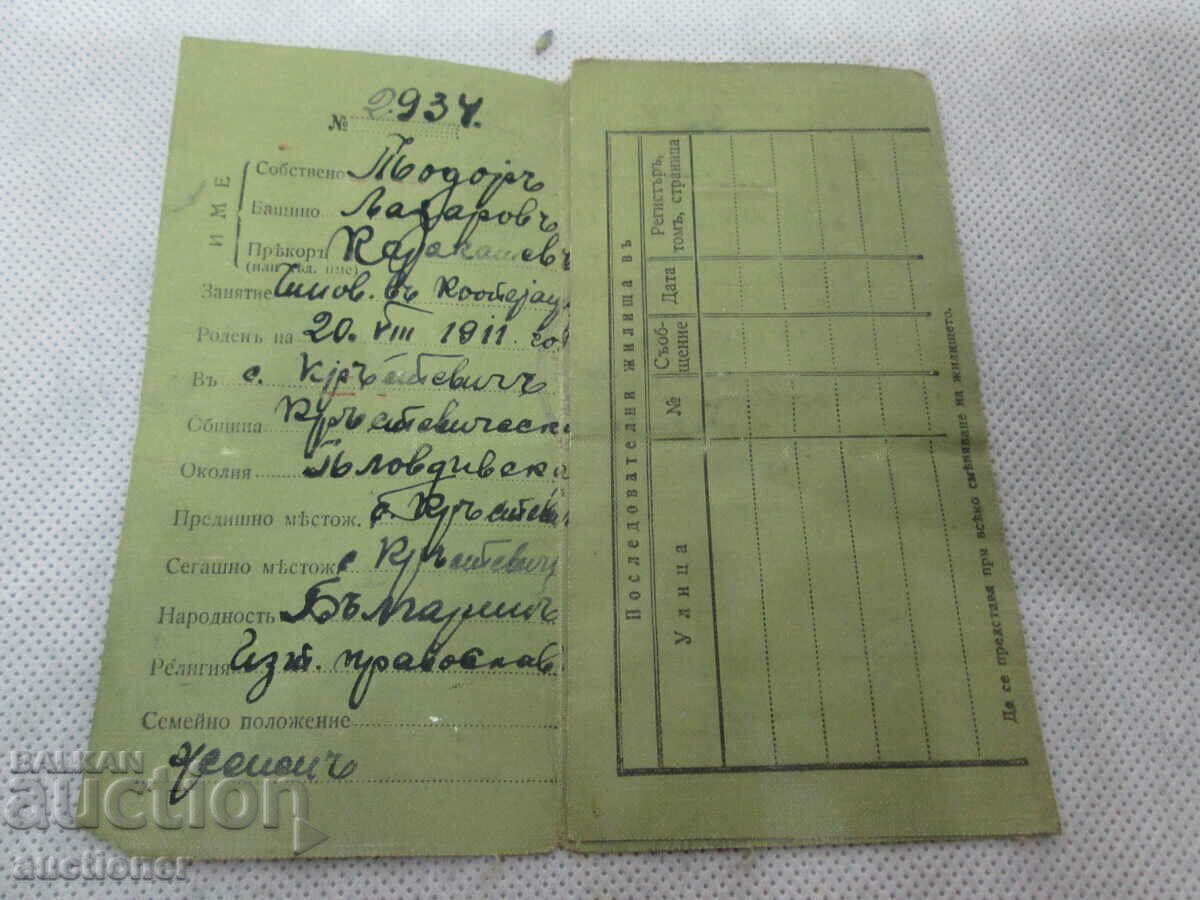 № 2934.
ИМЕ
Собствено Тодоръ
Башино Лазаровъ
Прѣкоръ Каракашевъ
(или фам. име)
Занятие Чинов. въ Кооперац
Роденъ на 20. VIII 1911 год
Въ с. Кръстевичъ
Община Кръстевическа
Околия Пловдивска
Предишно мѣстож. с. Кръстеви
Сегашно мѣстож. с Кръстевич
Народность Българинъ
Религия Изт. православ
Семейно положение
жененъ
Последователни жилища въ
Улица
№
Съоб-
щение
Дата
Регистъръ,
томъ, страница
Да се представя при всѣко смѣняване на жилището.
BALKAN
auction
auctioner